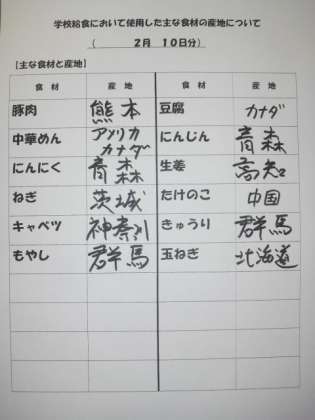 学校給食において使用した主な食材の産地について
( 2月 10日分)
【主な食材と産地】
食材 産地 食材 産地
豚肉 熊本 豆腐 カナダ
中華めん アメリカ カナダ にんじん 青森
にんにく 青森 生姜 高知
ねぎ 茨城 たけのこ 中国
キャベツ 神奈川 きゅうり 群馬
もやし 群馬 玉ねぎ 北海道